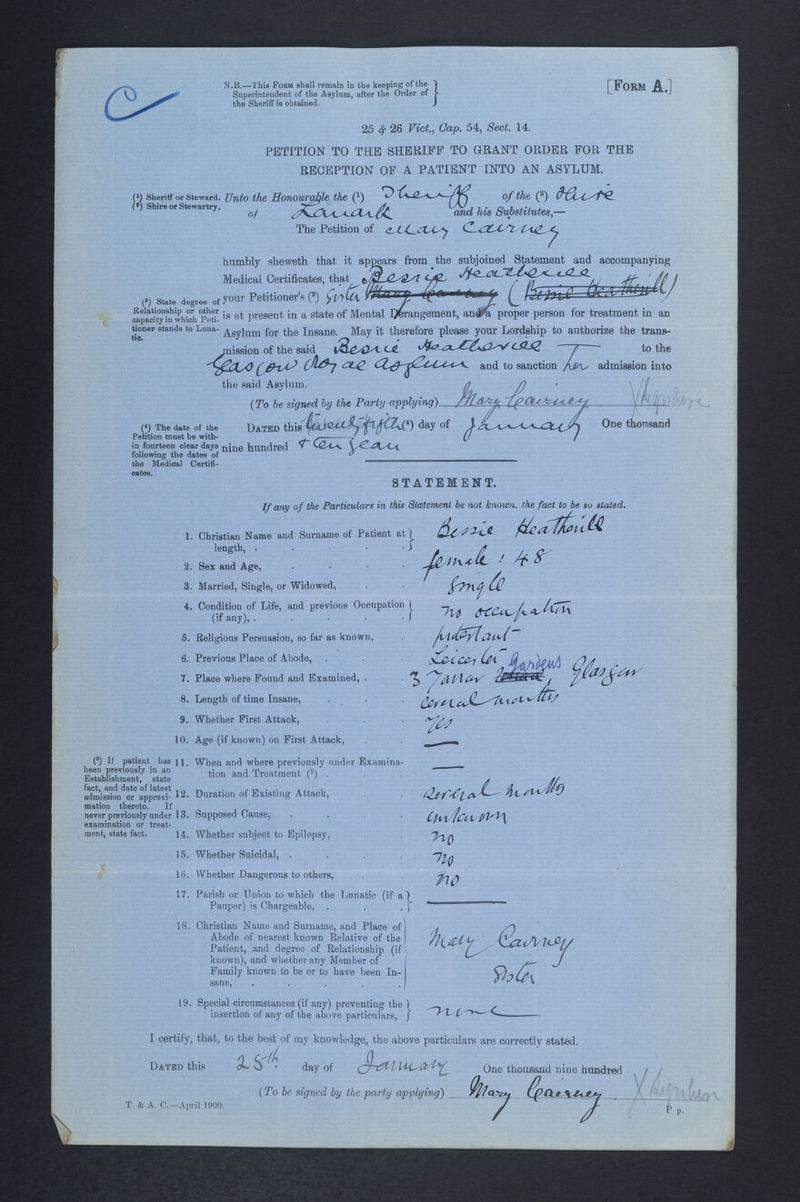 C
N.B.—This FORM shall remain in the keeping of the
Superintendent of the Asylum, after the Order of
the Sheriff is obtained.
[FORM A.]
25 & 26 Vict., Cap. 54, Sect. 14.
PETITION TO THE SHERIFF TO GRANT ORDER FOR THE
RECEPTION OF A PATIENT INTO AN ASYLUM.
(1) Sheriff or Steward.
(2) Shire or Stewartry.
Unto the Honourable the (1) Sheriff of the (2) Shire
of Lanark and his Substitutes,—
The Petition of Mary Cairney
humbly sheweth that it appears from the subjoined Statement and accompanying
Medical Certificates, that Bessie Heatherill
(3) State degree of
Relationship or other
capacity in which Peti-
tioner stands to Luna-
tic.
your Petitioner's (3) Sister Mary Cairney (Bessie Heatherill)
is at present in a state of Mental Derangement, and a proper person for treatment in an
Asylum for the Insane. May it therefore please your Lordship to authorize the trans-
mission of the said Bessie Heatherill to the
Glasgow Royal Asylum and to sanction her admission into
the said Asylum.
(To be signed by the Party applying) Mary Cairney X Sign here
(4) The date of the
Petition must be with-
in fourteen clear days
following the dates of
the Medical Certifi-
cates.
DATED this twenty fifth (4) day of January One thousand
nine hundred & ten years
STATEMENT.
If any of the Particulars in this Statement be not known, the fact to be so stated.
1. Christian Name and Surname of Patient at
length, . Bessie Heatherill
2. Sex and Age, female : 48
3. Married, Single, or Widowed, Single
4. Condition of Life, and previous Occupation
(if any), . no occupation
5. Religious Persuasion, so far as known, protestant
6. Previous Place of Abode, . Leicester
7. Place where Found and Examined, . 3 Gardens, Glasgow
8. Length of time Insane, several months
9. Whether First Attack, Yes
10. Age (if known) on First Attack, —
(5) If patient has
been previously in an
Establishment, state
fact, and date of latest
admission or approxi-
mation thereto. If
never previously under
examination or treat-
ment, state fact.
11. When and where previously under Examina-
tion and Treatment (5) . —
12. Duration of Existing Attack, several months
13. Supposed Cause, unknown
14. Whether subject to Epilepsy, no
15. Whether Suicidal, . no
16. Whether Dangerous to others, no
17. Parish or Union to which the Lunatic (if a
Pauper) is Chargeable, . —
18. Christian Name and Surname, and Place of
Abode of nearest known Relative of the
Patient, and degree of Relationship (if
known), and whether any Member of
Family known to be or to have been In-
sane, . Mary Cairney
Sister
19. Special circumstances (if any) preventing the
insertion of any of the above particulars, none
I certify, that, to the best of my knowledge, the above particulars are correctly stated.
DATED this 25th day of January One thousand nine hundred
(To be signed by the party applying) Mary Cairney. X Sign here
T. & A. C.—April 1900.
P p.